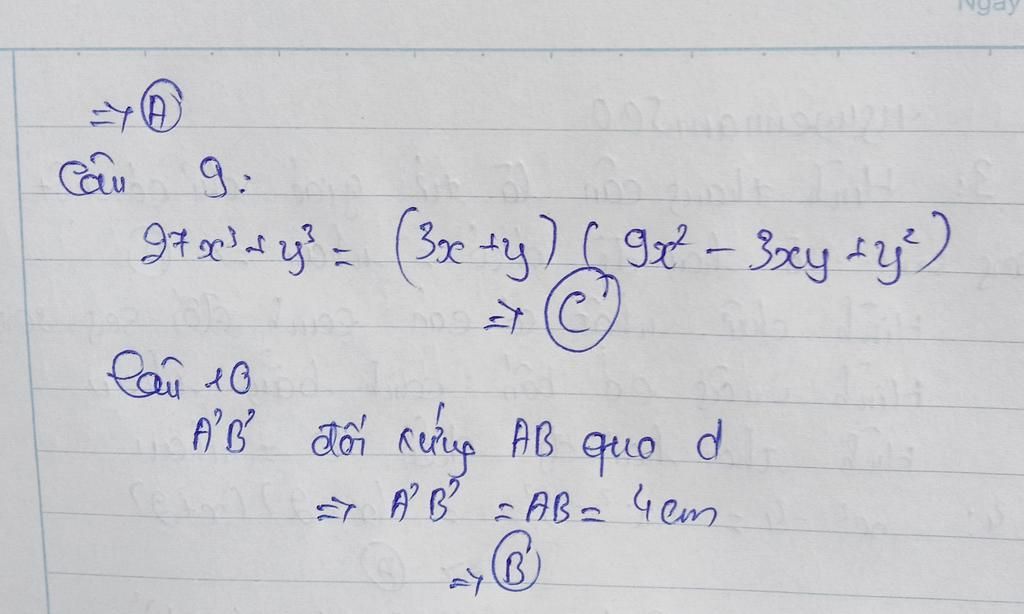 Ngày
=> A
Câu 9:
27x³ + y³ = (3x + y) (9x² - 3xy + y²)
=> C
Câu 10
A'B' đối xứng AB qua d
=> A'B' = AB = 4cm
=> B